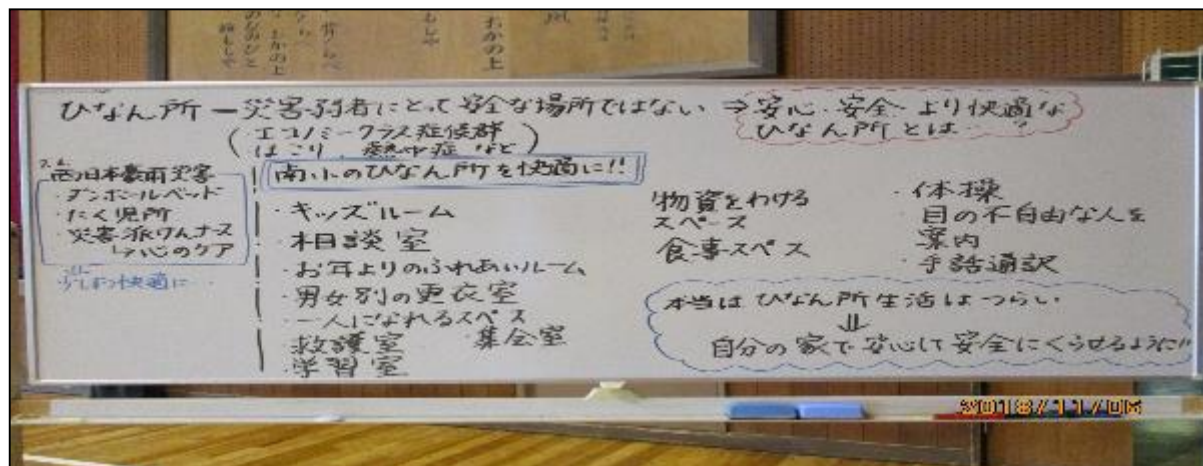 おかの上
ひなん所－災害弱者にとって安全な場所ではない ⇒ 安心・安全 より快適な
ひなん所とは…
(エコノミークラス症候群
ほこり、熱中症 など)
西日本豪雨災害
・ダンボールベッド
・たく児所
・災害派けんナース
↳心のケア
少しずつ快適に…
南小のひなん所を快適に!!
・キッズルーム
・相談室
・お年よりのふれあいルーム
・男女別の更衣室
・一人になれるスペース
救護室 ・集会室
学習室
物資をわける
スペース
食事スペス
・体操
・目の不自由な人を
案内
・手話通訳
本当は ひなん所生活はつらい
⇓
自分の家で安心して安全にくらせるように!!
2018/11/06